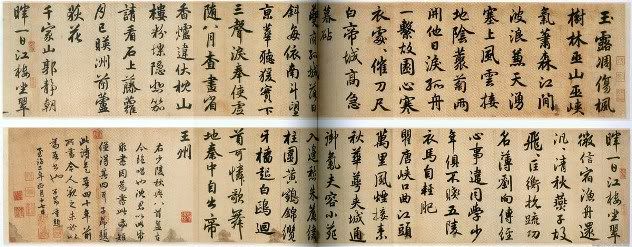 玉露凋傷楓
樹林巫山巫峽
氣蕭森江間
波浪蒹天湧
塞上風雲接
地陰叢菊兩
開他日淚孤舟
一繫故園心寒
衣處々催刀尺
白帝城高急
暮砧
夔府孤城落日
斜每依南斗望
京華聽猿實下
三聲淚奉使虛
隨八月查畫省
香爐違伏枕山
樓粉堞隱悲笳
請看石上藤蘿
月已暎洲前蘆
荻花
千家山郭靜朝
暉一日江樓坐翠
暉一日江樓坐翠
微信宿漁舟還
汎々清秋燕子故
飛匡衡抗疏功
名薄劉向傳經
心事違同學少
年俱不賤五陵
衣馬自輕肥
瞿唐峽口曲江頭
萬里風煙接素
秋華萼夾城通
御氣芙容小苑
入邊愁朱簾繡
柱圍黃鶴錦纜
牙檣起白鷗迴
首可憐歌舞
地秦中自古帝
王州
右少陵秋興
今絕唱也
此詩是吾四十年前
所書今